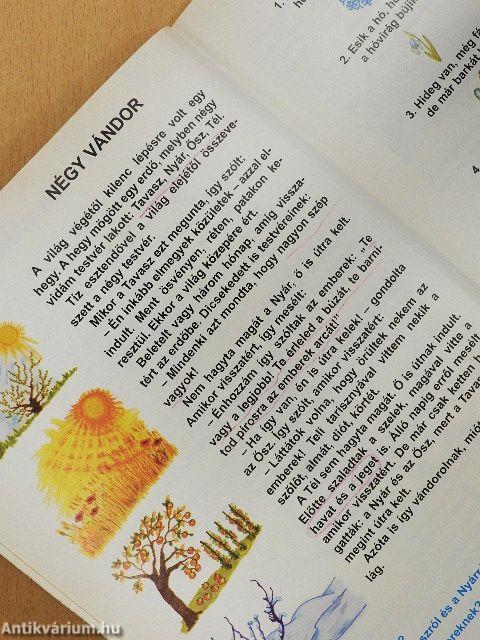 NÉGY VÁNDOR
A világ végétől kilenc lépésre volt egy
hegy. A hegy mögött egy erdő, melyben négy
vidám testvér lakott: Tavasz, Nyár, Ősz, Tél.
Tíz esztendővel a világ elejétől összeve-
szett a négy testvér.
Mikor a Tavasz ezt megunta, így szólt:
– Én inkább elmegyek közületek – azzal el-
indult. Ment ösvényen, réten, patakon ke-
resztül. Ekkor a világ közepére ért.
Beletelt vagy három hónap, amíg vissza-
tért az erdőbe. Dicsekedett is testvéreinek:
– Mindenki azt mondta, hogy nagyon szép
vagyok!
Nem hagyta magát a Nyár: ő is útra kelt.
Amikor visszatért, így mesélt:
– Énhozzám így szóltak az emberek: „Te
vagy a legjobb. Te érleled a búzát, te barní-
tod pirosra az emberek arcát!"
– Ha így van, én is útra kelek! – gondolta
az Ősz. Így szólt, amikor visszatért:
– Láttátok volna, hogy örültek nekem az
emberek! Teli tarisznyával vittem nekik a
szőlőt, almát, diót, körtét.
A Tél sem hagyta magát. Ő is útnak indult.
Előtte szaladtak a szelek, magával vitte a
havat és a jeget is. Álló napig erről mesélt,
amikor visszatért. De már csak ketten hall-
gatták: a Nyár és az Ősz, mert a Tavasz
megint útra kelt.
Azóta is így vándorolnak, mióta
lág.
1.
2. Esik a hó, h
a hóvirág bújik
3. Hideg van, még fá
de már barkát
4.
szról és a Nyár
reknek?
Antikvárium.hu